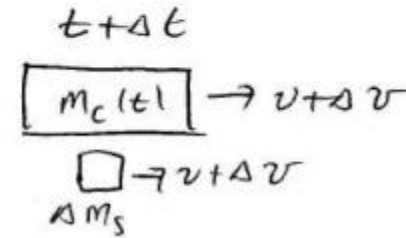 t+Δt
m_c(t) → v+Δv
→ v+Δv
Δm_s